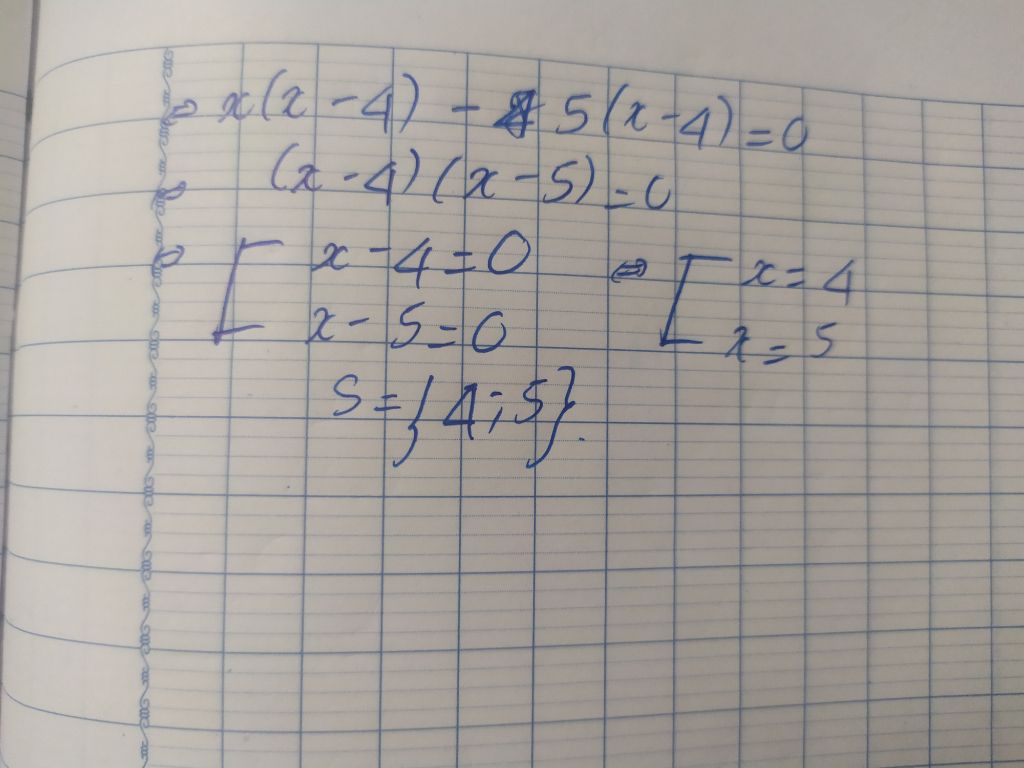 ⇔ x(x - 4) - 5(x - 4) = 0
⇔ (x - 4)(x - 5) = 0
⇔ [ x - 4 = 0 ⇔ [ x = 4
x - 5 = 0 x = 5
S = {4; 5}.